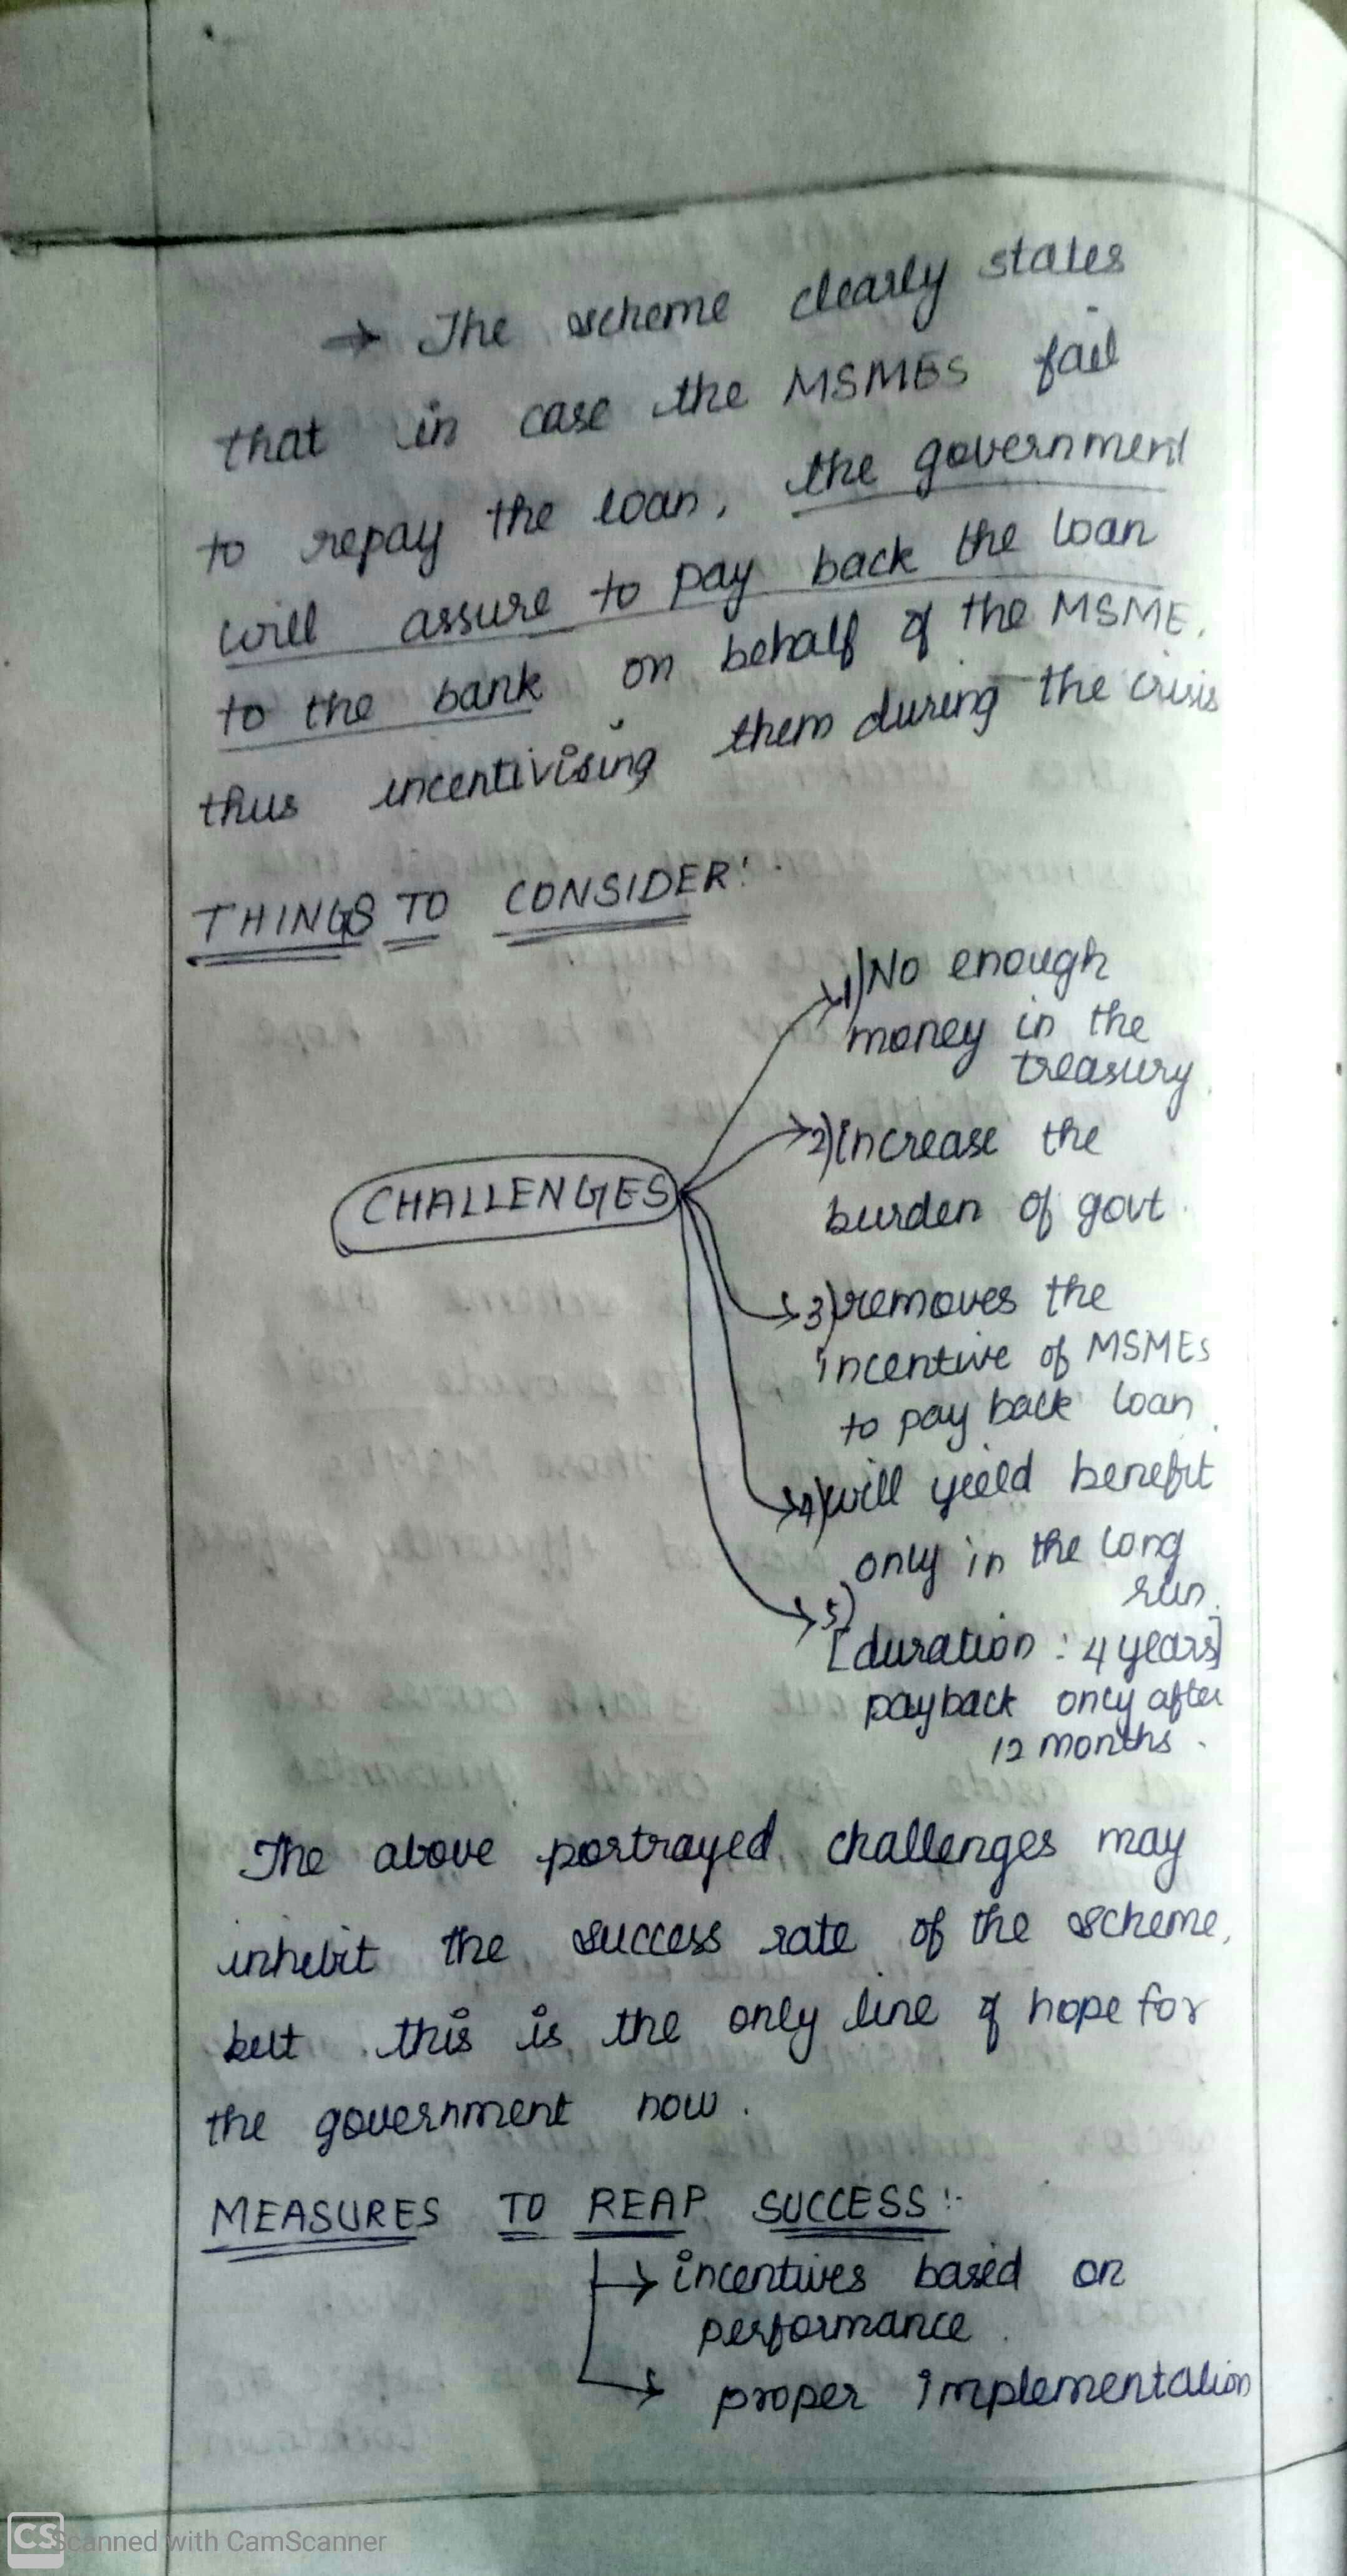 → The scheme clearly states
that in case the MSMES fail
to repay the loan, the government
will assure to pay back the loan
to the bank on behalf of the MSME,
thus incentivising them during the crisis
THINGS TO CONSIDER:
CHALLENGES
1) No enough
money in the
treasury.
2) increase the
burden of govt.
3) removes the
incentive of MSMEs
to pay back loan.
4) will yield benefit
only in the long
run.
5)
[duration : 4 years]
payback only after
12 months.
The above portrayed challenges may
inhibit the success rate of the scheme,
but this is the only line of hope for
the government now.
MEASURES TO REAP SUCCESS:
→ incentives based on
performance.
→ proper implementation
CS Scanned with CamScanner